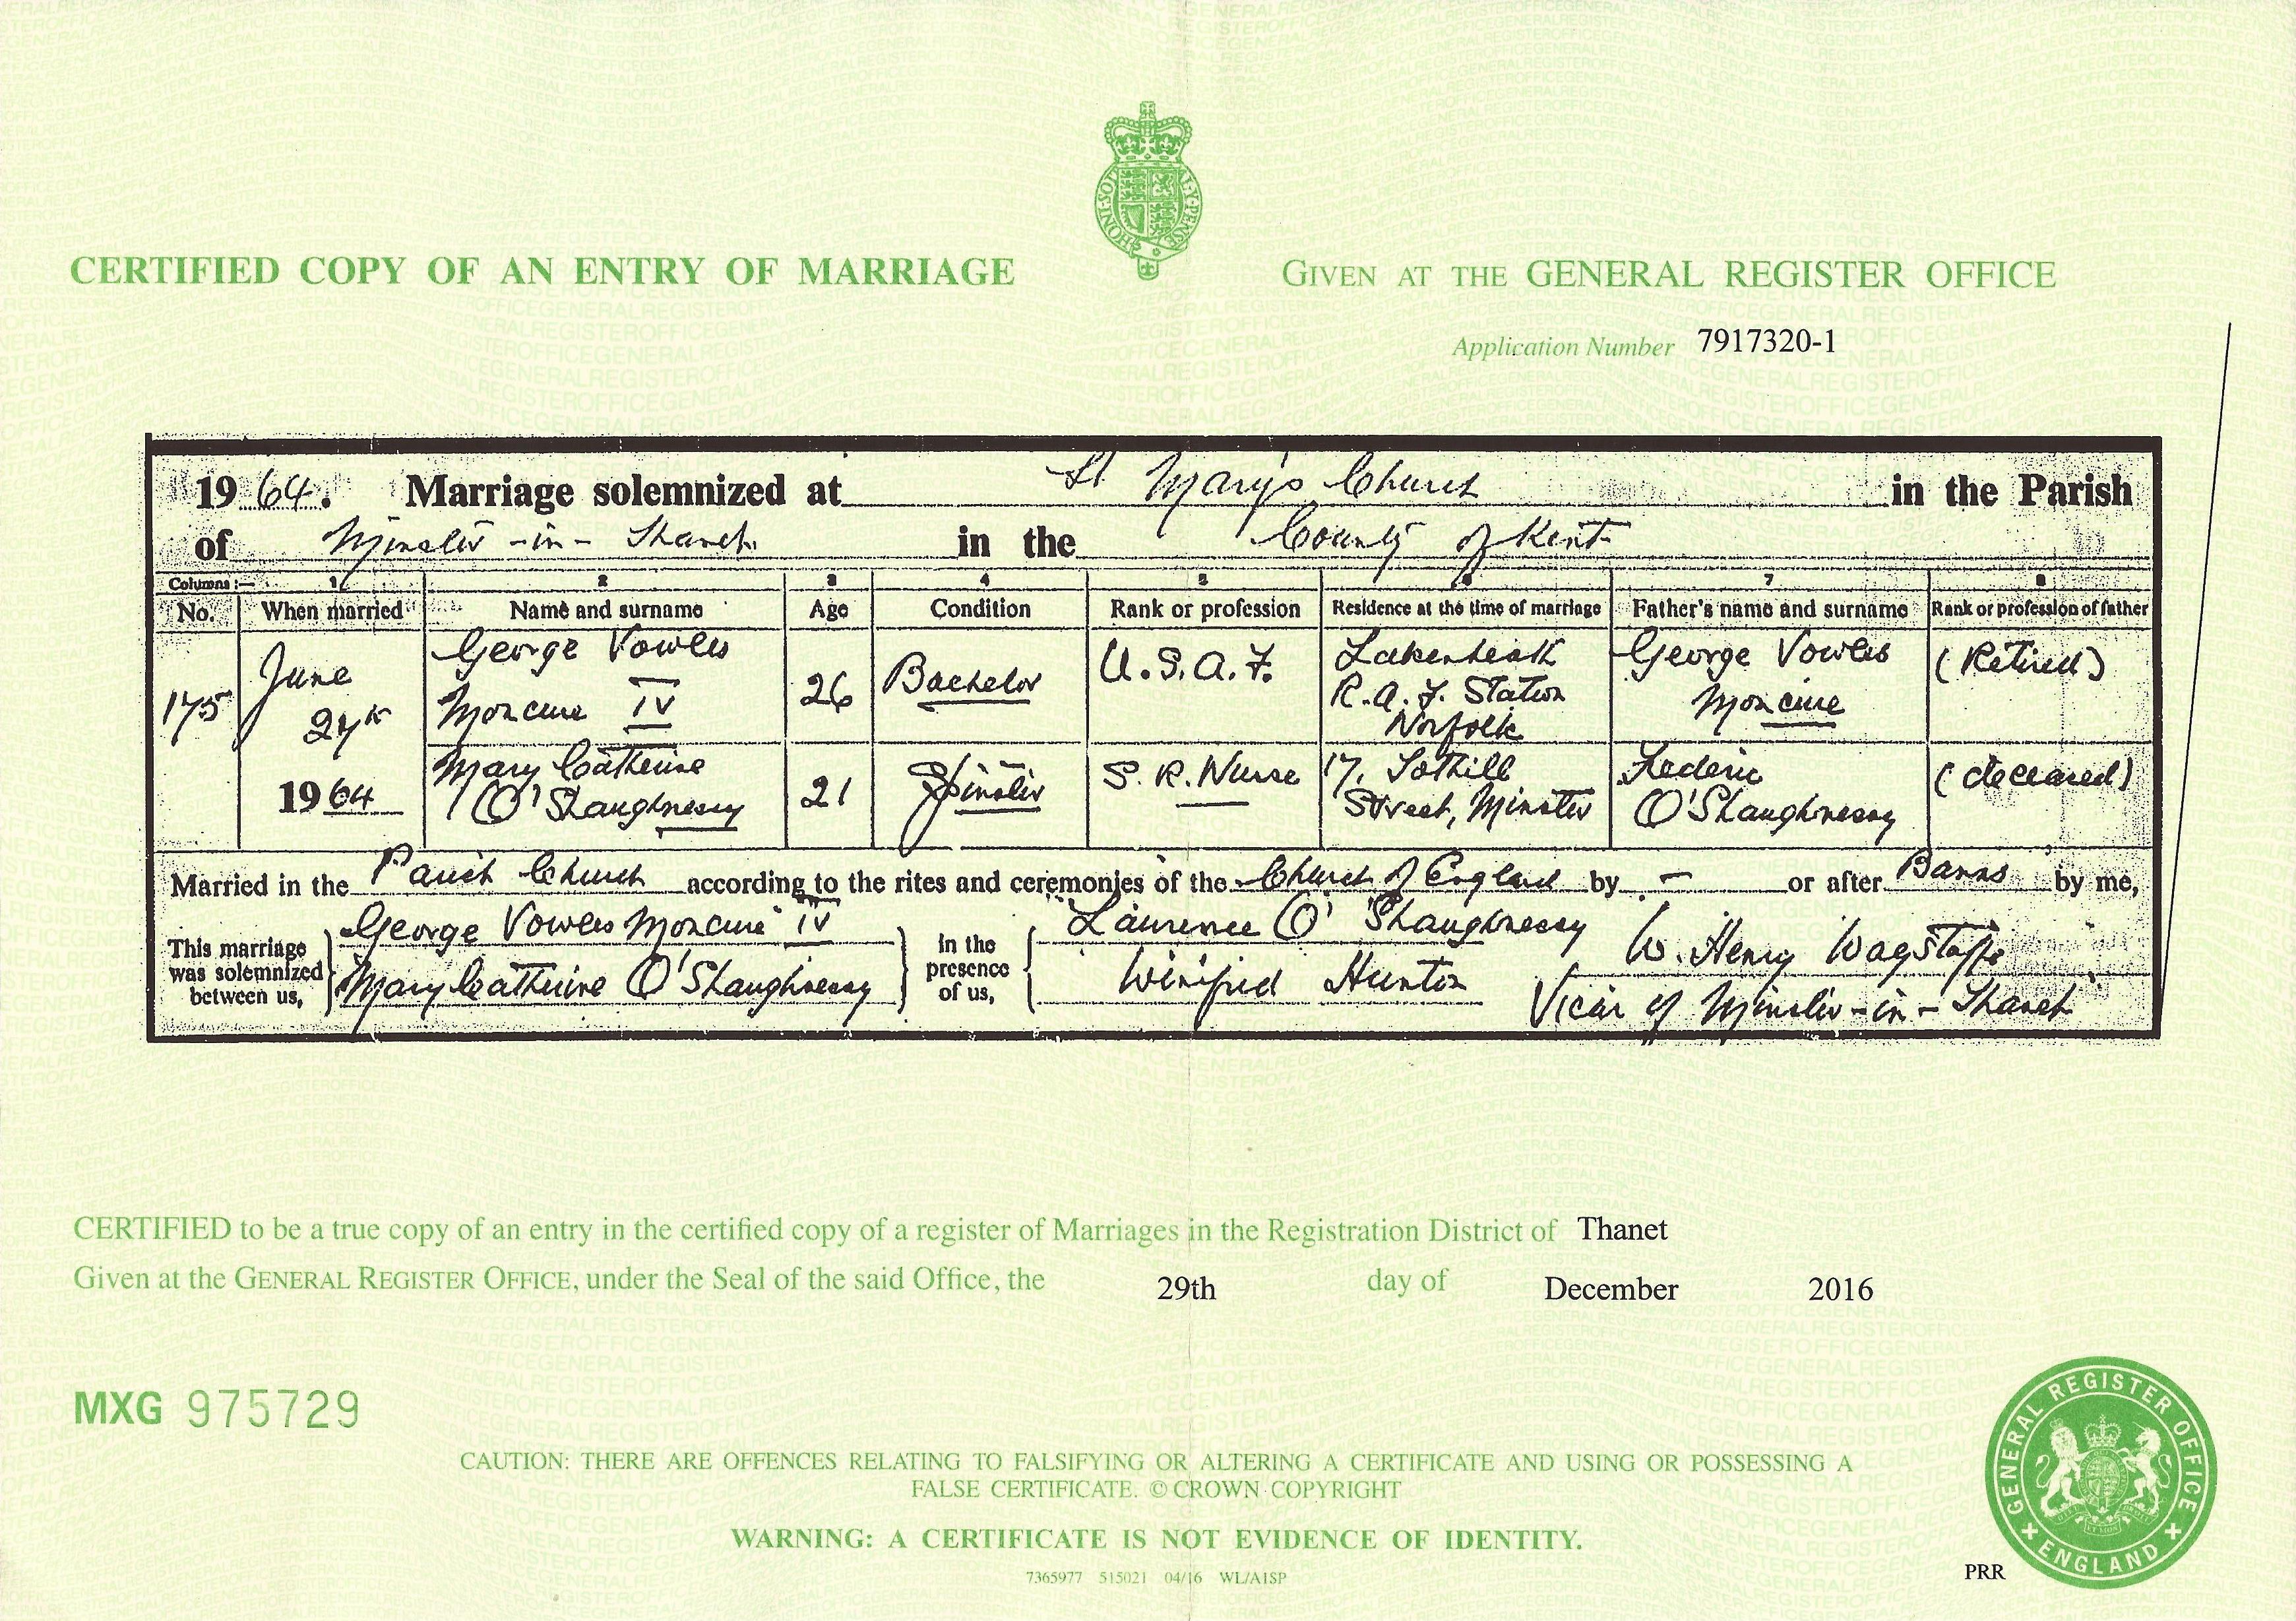 CERTIFIED COPY OF AN ENTRY OF MARRIAGE
GIVEN AT THE GENERAL REGISTER OFFICE
Application Number 7917320-1
1964. Marriage solemnized at St Mary's Church in the Parish
of Minster-in-Thanet in the County of Kent
Columns:— 1 2 3 4 5 6 7 8
No. When married Name and surname Age Condition Rank or profession Residence at the time of marriage Father's name and surname Rank or profession of father
175 June 27th 1964
George Vowles Moncure IV
26
Bachelor
U.S.A.F.
Lakenheath
R.A.F. Station
Norfolk
George Vowles
Moncure
(Retired)
Mary Catherine
O'Shaughnessy
21
Spinster
S.R. Nurse
17, Tothill
Street, Minster
Frederic
O'Shaughnessy
(deceased)
Married in the Parish Church according to the rites and ceremonies of the Church of England by — or after Banns by me,
This marriage was solemnized between us,
George Vowles Moncure IV
Mary Catherine O'Shaughnessy
in the presence of us,
Laurence O'Shaughnessy
Winifred Hunton
W. Henry Wagstaffe
Vicar of Minster-in-Thanet
CERTIFIED to be a true copy of an entry in the certified copy of a register of Marriages in the Registration District of Thanet
Given at the GENERAL REGISTER OFFICE, under the Seal of the said Office, the 29th day of December 2016
MXG 975729
CAUTION: THERE ARE OFFENCES RELATING TO FALSIFYING OR ALTERING A CERTIFICATE AND USING OR POSSESSING A
FALSE CERTIFICATE. © CROWN COPYRIGHT
WARNING: A CERTIFICATE IS NOT EVIDENCE OF IDENTITY.
7365977 515021 04/16 WL/AISP
GENERAL REGISTER OFFICE
ENGLAND
PRR